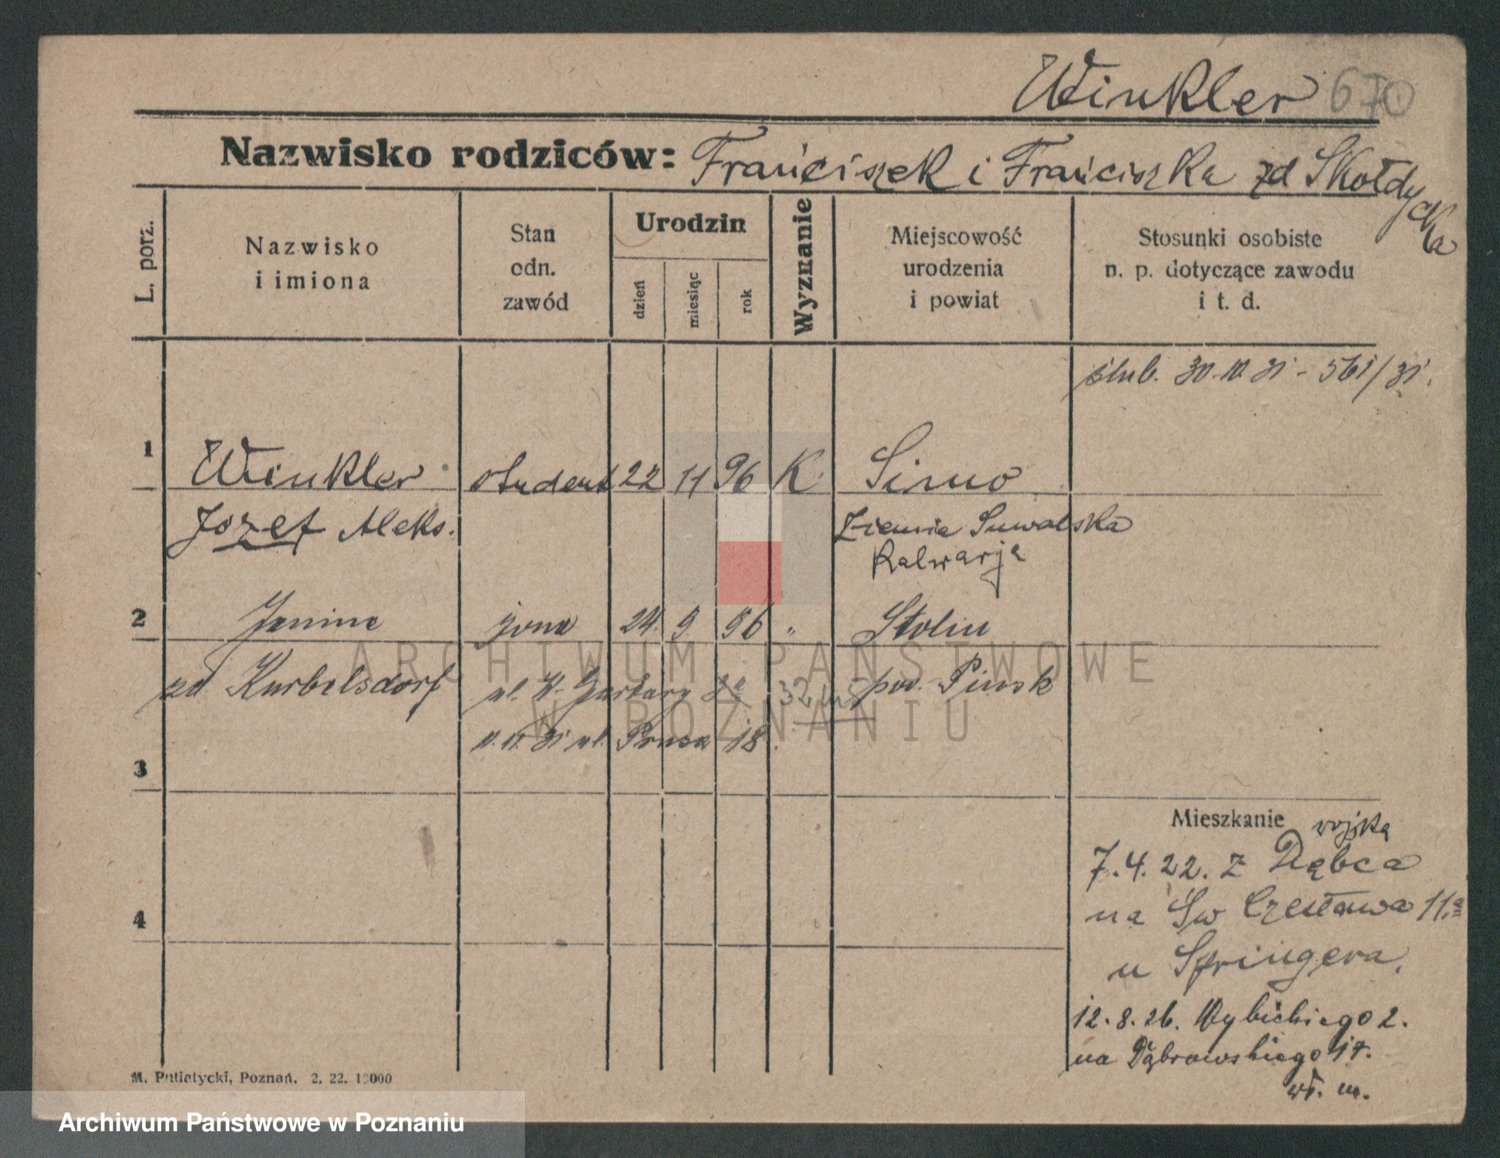 Winkler 670
Nazwisko rodziców: Franciszek i Franciszka zd Skołdycka
L. porz.
Nazwisko i imiona
Stan odn. zawód
Urodzin
dzień
miesiąc
rok
Wyznanie
Miejscowość urodzenia i powiat
Stosunki osobiste n. p. dotyczące zawodu i t. d.
ślub. 30.10.31 - 561/31.
1 Winkler student 22 11 96 K Simo
Józef Aleks. Ziemia Suwalska
Kalwarja
2 Janina żona 24 9 96 " Stolin
zd. Kurbelsdorf ul. W. Garbary 32 pow. Pinsk
ul. Prusa 18.
3
Mieszkanie
wojska
7.4.22. z Dębca
na Św Czesława 11.a
u Springera.
12.8.26. Wybickiego 2.
na Dąbrowskiego 17.
wł. m.
4
M. Putiatycki, Poznań, 2. 22. 10000
ARCHIWUM PAŃSTWOWE
W POZNANIU
Archiwum Państwowe w Poznaniu